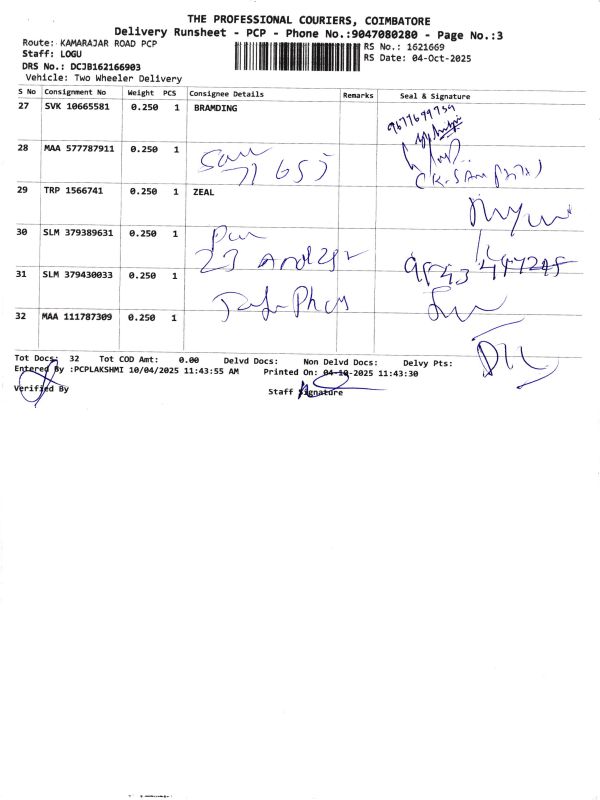 THE PROFESSIONAL COURIERS, COIMBATORE
Delivery Runsheet - PCP - Phone No.:9047080280 - Page No.:3
Route: KAMARAJAR ROAD PCP
RS No.: 1621669
Staff: LOGU
RS Date: 04-Oct-2025
DRS No.: DCJB162166903
Vehicle: Two Wheeler Delivery
S No Consignment No Weight PCS Consignee Details Remarks Seal & Signature
27 SVK 10665581 0.250 1 BRAMDING
28 MAA 577787911 0.250 1
29 TRP 1566741 0.250 1 ZEAL
30 SLM 379389631 0.250 1
23
31 SLM 379430033 0.250 1
32 MAA 111787309 0.250 1
Tot Docs: 32 Tot COD Amt: 0.00 Delvd Docs: Non Delvd Docs: Delvy Pts:
Entered By :PCPLAKSHMI 10/04/2025 11:43:55 AM Printed On: 04-10-2025 11:43:30
Verified By Staff Signature